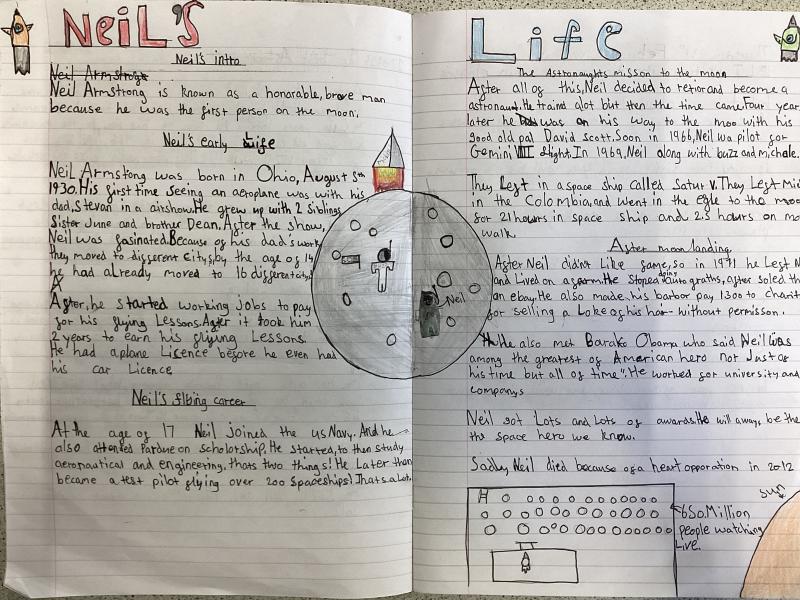 NEIL'S
Neil's intro
Neil Armstrong
Neil Armstrong is known as a honorable, brave man
because he was the first person on the moon.
Neil's early Life
Neil Armstong was born in Ohio, August 5th
1930. His first time seeing an aeroplane was with his
dad, Stevan in a airshow. He grew up with 2 siblings
Sister June and brother Dean. After the show,
Neil was fasinated. Because of his dad's work
they moved to different citys, by the age of 14
he had already moved to 16 different citys,
After, he started working jobs to pay
for his flying Lessons. After it took him
2 years to earn his flying Lessons.
He had a plane Licence before he even had
his car Licence
Neil's flbing career
At the age of 17 Neil joined the us Navy. And he
also attended Pardue on scholotship. He started, to then study
aeronautical and engineering, thats two things! He Later than
became a test pilot flying over 200 spaceships! Thats a Lot.
Neil
Life
The Astronaughts misson to the moon
After all of this, Neil decided to retir and become a
astronaut. He traind alot but then the time came. Four year
later he was on his way to the moo with his
good old pal David scott. Soon in 1966, Neil wa pilot for
Gemini VIII flight. In 1969, Neil along with buzz and michale.
They Left in a space ship called Satur V. They Left Mi
in the Colombia, and went in the egle to the moo
for 21 hours in space ship and 2.5 hours on mo
walk.
After moon landing
After Neil didn't Like fame, so in 1971 he Left N
and Lived on a farm. He stoped doing auto graths, after soled th
on ebay. He also made his barbor pay 1300 to charit
for selling a Loke of his hair without permisson.
He also met Barako Obama who said Neil was
among the greatest of American hero not Just of
his time but all of time". He worked for university and
companys
Neil got Lots and Lots of awards. He will aways be the
the space hero we know.
Sadly, Neil died because of a heart opporation in 2012
sun
650. Million
people watching
Live.